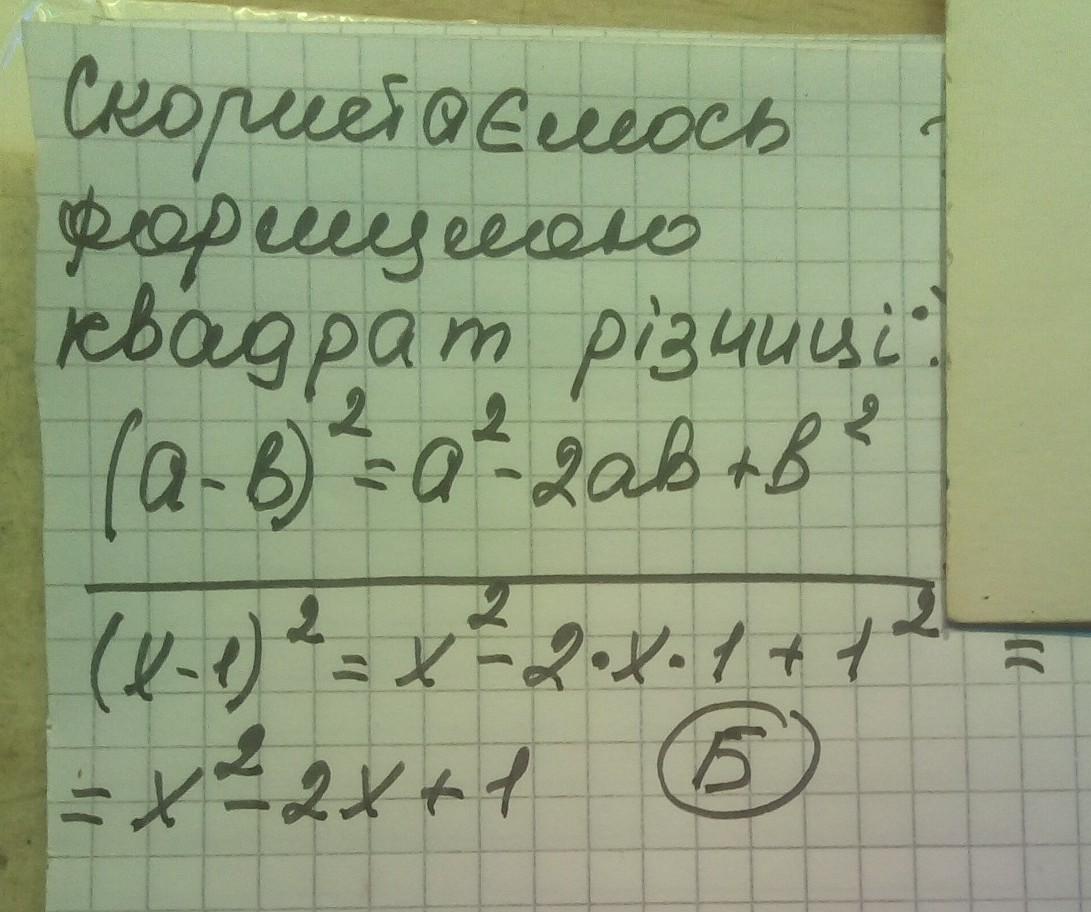 Скористаємось
формулою
квадрат різниці:
(a-b)² = a² - 2ab + b²
(x-1)² = x² - 2·x·1 + 1² =
= x² - 2x + 1 Б